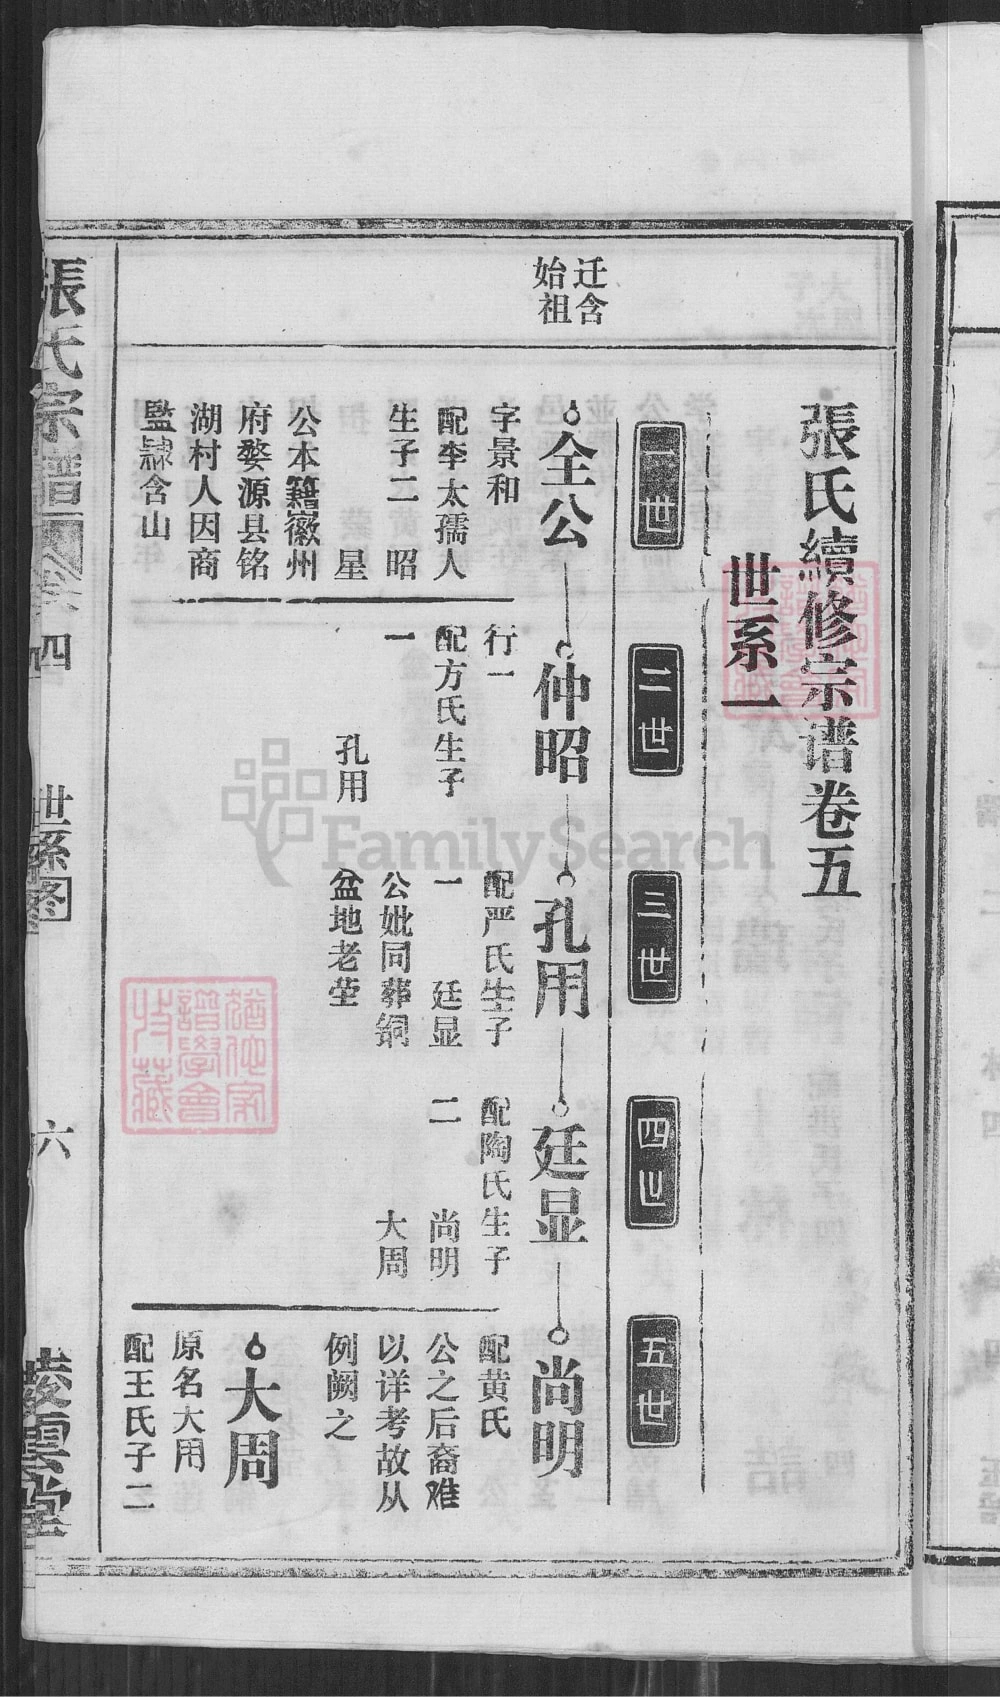 張氏續修宗谱卷五
世系一
一世
二世
三世
四世
五世
迁含
始祖
全公
字景和
配李太孺人
生子二 昭
星
公本籍徽州
府婺源县铭
湖村人因商
监隷含山
仲昭
行一
配方氏生子
一
孔用
孔用
配严氏生子
一 廷显
公妣同葬銅
盆地老茔
廷显
配陶氏生子
二 尚明
大周
尚明
配黄氏
公之后裔难
以详考故从
例阙之
大周
原名大用
配王氏子二
張氏宗譜
卷四
世系图
六
凌雲堂
FamilySearch
譜學會
特藏